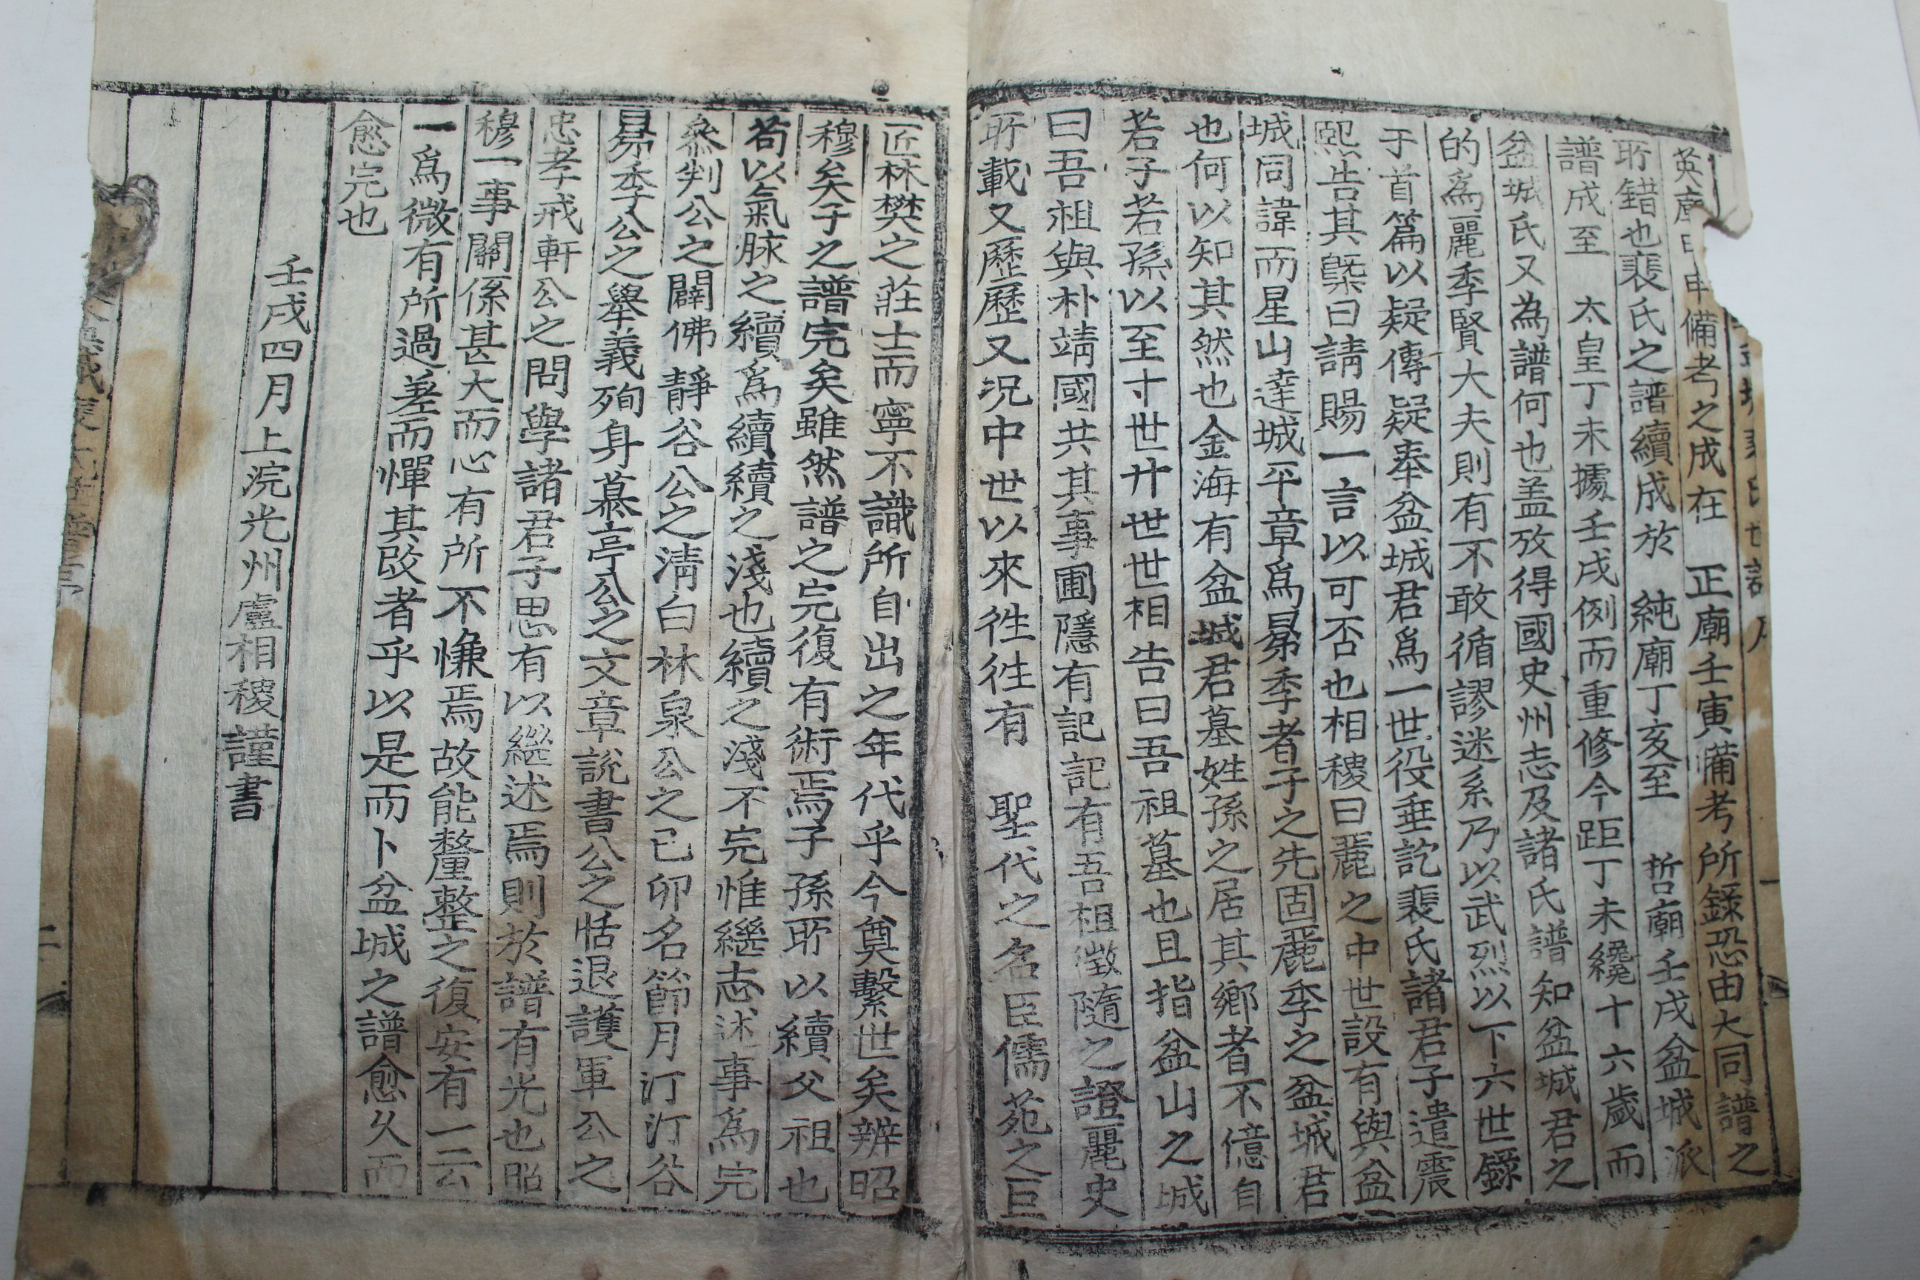 英廟申備考之成在 正廟壬寅備考所錄恐由大同譜之
所錯也裴氏之譜續成於 純廟丁亥至 哲廟壬戌盆城派
譜成至 太皇丁未據壬戌例而重修今距丁未纔十六歲而
盆城氏又為譜何也盖攷得國史州志及諸氏譜知盆城君之
的爲麗季賢大夫則有不敢循謬迷系乃以武烈以下六世錄
于首篇以疑傳疑奉盆城君爲一世役垂訖裴氏諸君子遣震
熙告其槩曰請賜一言以可否也相稷曰麗之中世設有與盆
城同諱而星山達城平章爲昴季者子之先固麗季之盆城君
也何以知其然也金海有盆城君墓姓孫之居其鄉者不億自
若子若孫以至寸世廿世世相告曰吾祖墓也且指盆山之城
曰吾祖與朴靖國共其事圃隱有記記有吾祖徵隨之證麗史
所載又歷歷又况中世以來徃徃有 聖代之名臣儒苑之巨
匠林樊之莊士而寧不識所自出之年代乎今奠繫世矣辨昭
穆矣子之譜完矣雖然譜之完復有術焉子孫所以續父祖也
苟以氣脉之續爲續續之淺也續之淺不完惟繼志述事爲完
叅判公之闢佛靜谷公之淸白林泉公之己卯名節月汀汀谷
昴季公之舉義殉身慕亭公之文章說書公之恬退護軍公之
忠孝戒軒公之問學諸君子思有以繼述焉則於譜有光也昭
穆一事關係甚大而心有所不慊焉故能釐整之復安有一云
一爲微有所過差而憚其改者乎以是而卜盆城之譜愈久而
愈完也
壬戌四月上浣光州盧相稷謹書
二